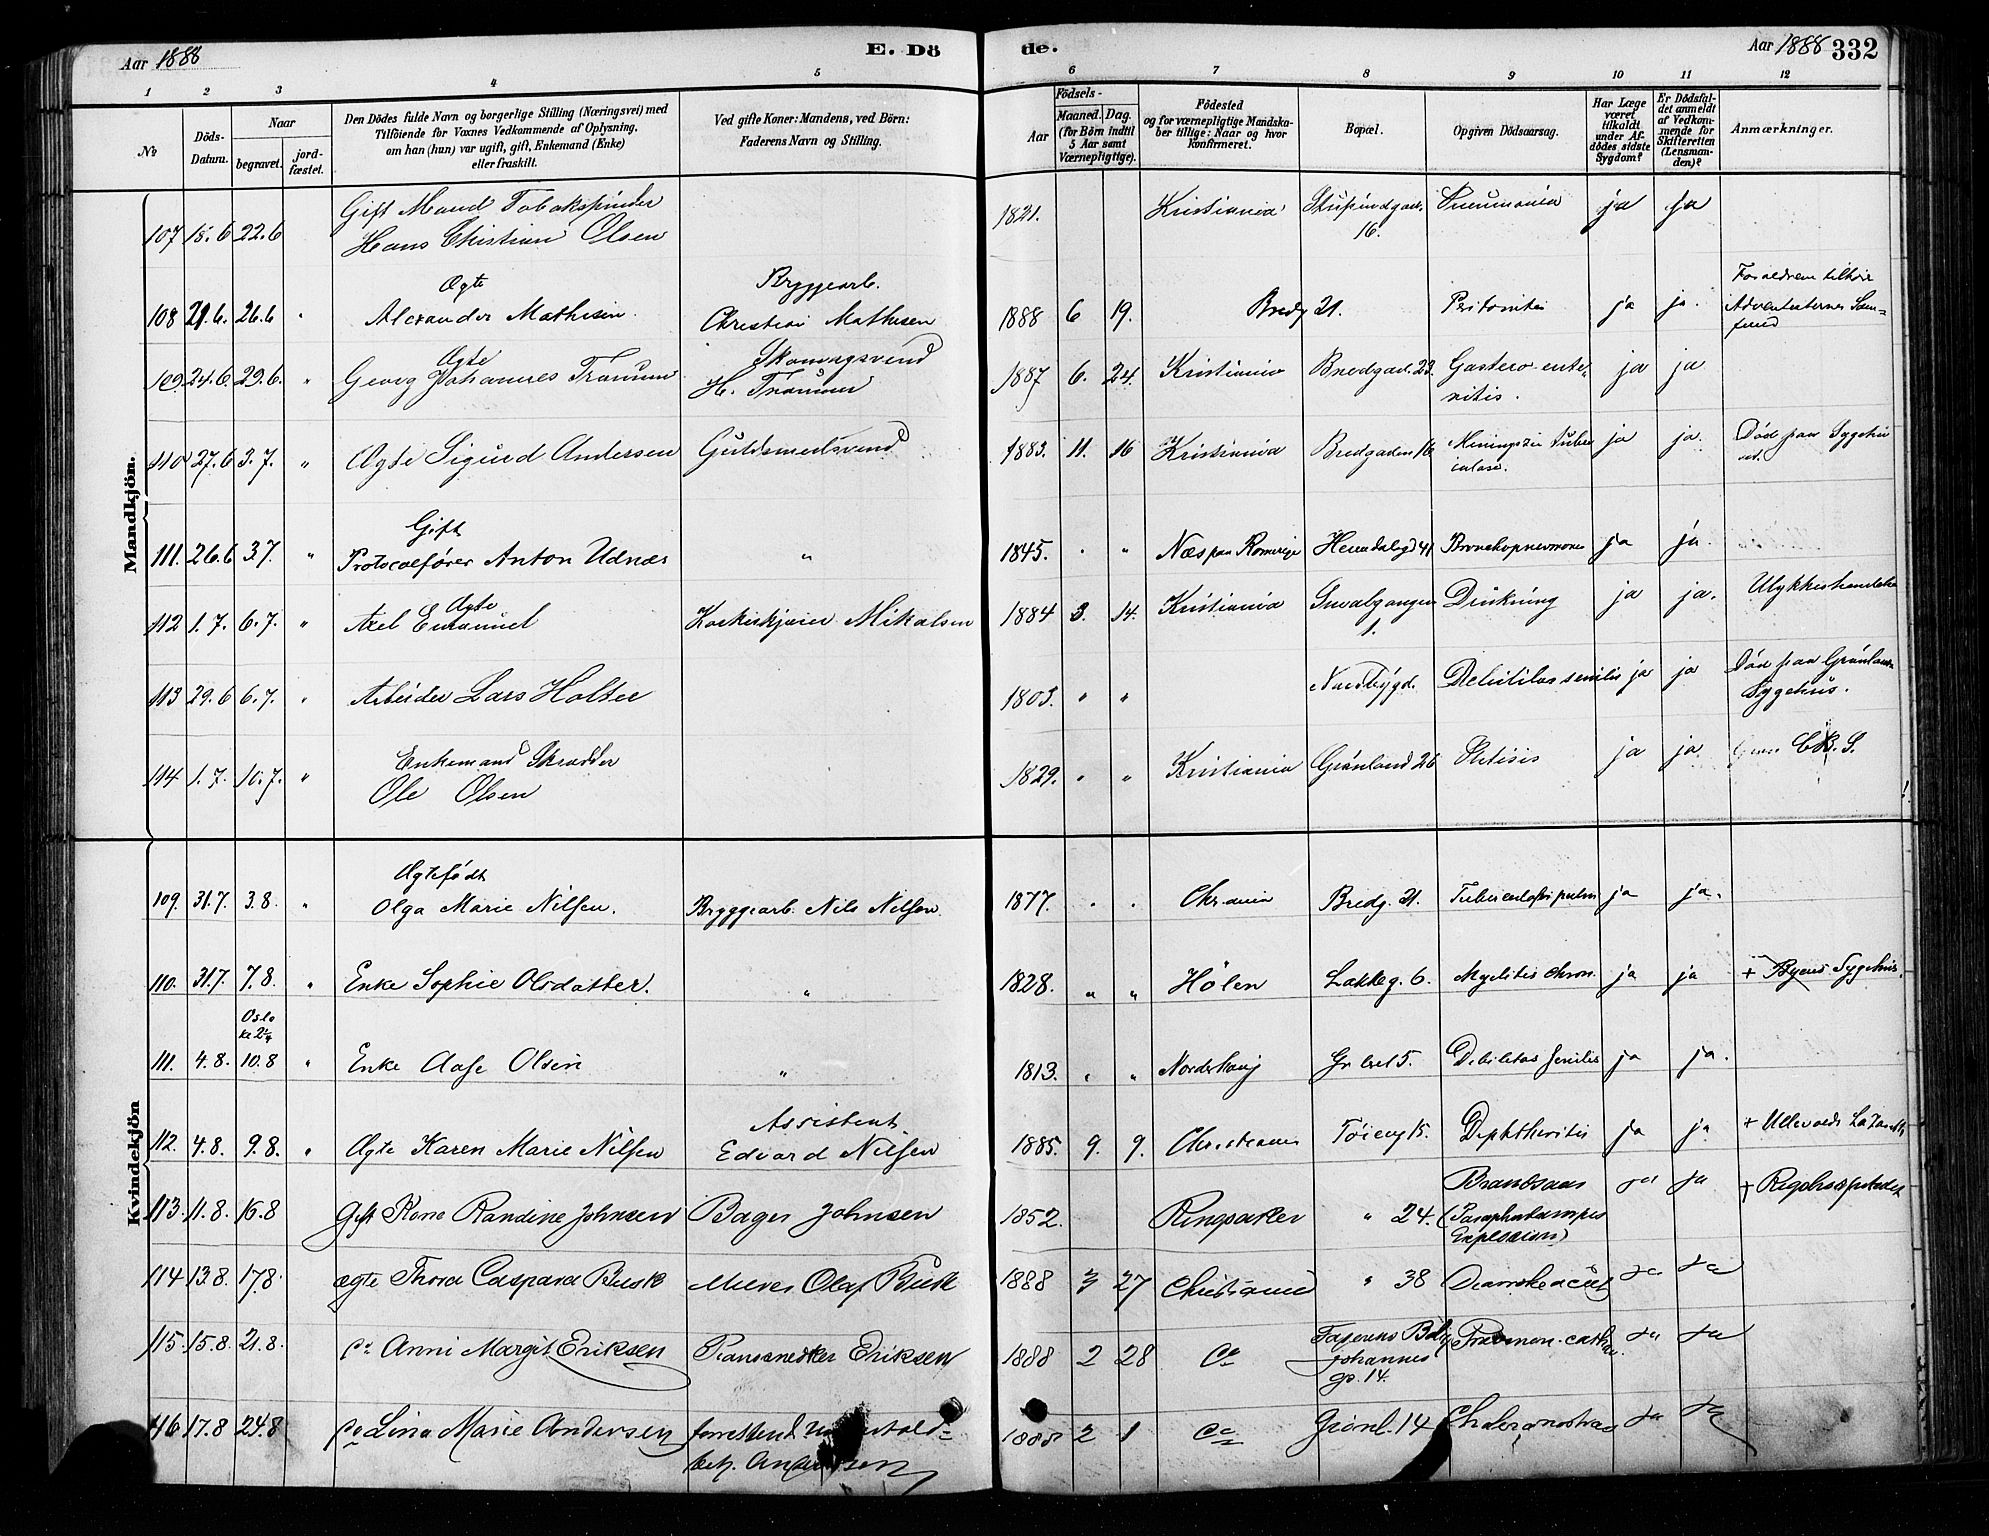 Aar 1888
E. Dö
de.
Aar 1888 332
1 2 3 4 5 6 7 8 9 10 11 12
No
Döds-Datum.
Naar
begravet.
jord-fæstet.
Den Dödes fulde Navn og borgerlige Stilling (Næringsvei) med
Tilföiende for Voxnes Vedkommende af Oplysning,
om han (hun) var ugift, gift, Enkemand (Enke)
eller fraskilt.
Ved gifte Koner: Mandens, ved Börn:
Faderens Navn og Stilling.
Födsels-
Aar
Maaned. Dag.
(for Börn indtil
5 Aar samt
Værnepligtige).
Födested
og for værnepligtige Mandska-
ber tillige: Naar og hvor
konfirmeret.
Bopæl.
Opgiven Dödsaarsag.
Har Læge
været
tilkaldt
under Af-
dödes sidste
Sygdom?
Er Dödsfal-
det anmeldt
af Vedkom-
mende for
Skifteretten
(Lensman-
den)?
Anmærkninger.
Mandkjön.
Gift Mand Tobakspinder
107 18.6 22.6 Hans Christian Olsen 1821. Kristiania 16. Pneumonia ja ja
Ægte Bryggearb.
108 21.6. 26.6 " Alexander Mathisen. Christian Mathisen 1888 6 19. Bredg 21. Peritonitis ja ja. Forældrene tilhører
Adventisternes Sam-
fund
Ægte Skomagersvend
109 24.6 29.6. " Georg Johannes 1887 6. 24. Kristiania Bredgad. 23. Gastero-ente-
ritis. ja ja
110 27.6 3.7. " Ægte Sigurd Andersen Guldsmedsvend 1883. 11. 16 Kristiania Bredgaden 16 ja ja. Død paa Sygehu
set.
Gift
111. 26.6 3.7. " Protocolfører Anton Udnæs " 1845. " " Næs paa Romerige 41 ja ja.
Ægte
112 1.7. 6.7. " Axel Emanuel Mikalsen 1884 3. 14. Kristiania 1. Drukning ja ja.
113 29.6 6.7. " Arbeider Lars Holter 1803. " " Nordbygd. Debilitas senilis ja ja Død paa Grønlands
Sygehus.
Enkemand Skrædder
114 1.7. 10.7. " Ole Olsen 1829. " " Kristiania Grønland 26 Phtisis ja ja.
Kvindekjön
Ægtefødt
109. 31.7. 3.8. " Olga Marie Nilsen. Bryggearb. Nils Nilsen. 1877. " " Chr.ania Bredg. 21. ja ja.
110. 31.7 7.8. " Enke Sophie Olsdatter. " 1828. " " Hølen Lakkeg. 6. Myelitis chron. ja ja + Byens Sygehus.
Oslo
111. 4.8. 10.8 " Enke Aase Olsen " 1813. " " Norderhoug 5. Debilitas senilis ja ja.
Assistent.
112. 4.8. 9.8. " Ægte Karen Marie Nilsen Edvard Nilsen 1885. 9. 9. Christiania Tøieng 15. Diphtheritis ja ja + Ullevolds Lazareth
113. 11.8. 16.8 Gift Randine Johnsen Bager Johnsen 1852. Ringsaker " 24. Brandsaar
Explosion) ja ja + Rigshospitalet
114 13.8. 17.8 ægte Thora Caspara Busk Murer Olaf Busk 1888 3 27 Christiania " 38 ja ja
115. 15.8. 21.8. Do Anni Margit Eriksen Eriksen 1888 2 28 Do Johannes
gd. 14. ja ja
116 17.8 24.8 Do Lina Marie Andersen 1888 2 1 Do Grønl. 14 ja ja
Andersen